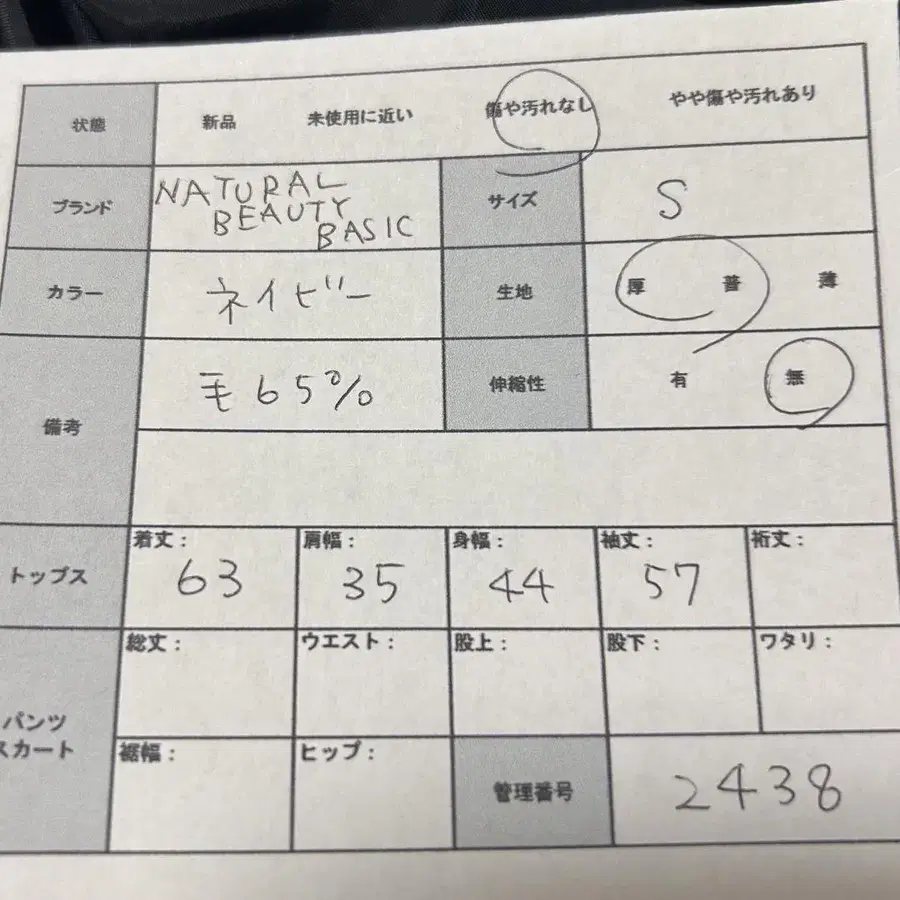 状態 新品 未使用に近い 傷や汚れなし やや傷や汚れあり
ブランド NATURAL BEAUTY BASIC サイズ S
カラー ネイビー 生地 厚 普 薄
備考 毛65% 伸縮性 有 無
トップス 着丈: 63 肩幅: 35 身幅: 44 袖丈: 57 裄丈:
パンツ スカート 総丈: ウエスト: 股上: 股下: ワタリ:
裾幅: ヒップ: 管理番号 2438